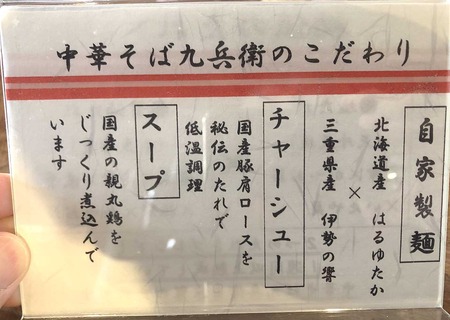 中華そば九兵衛のこだわり
自家製麺
北海道産 はるゆたか
×
三重県産 伊勢の響
チャーシュー
国産豚肩ロースを
秘伝のたれで
低温調理
スープ
国産の親丸鶏を
じっくり煮込んで
います